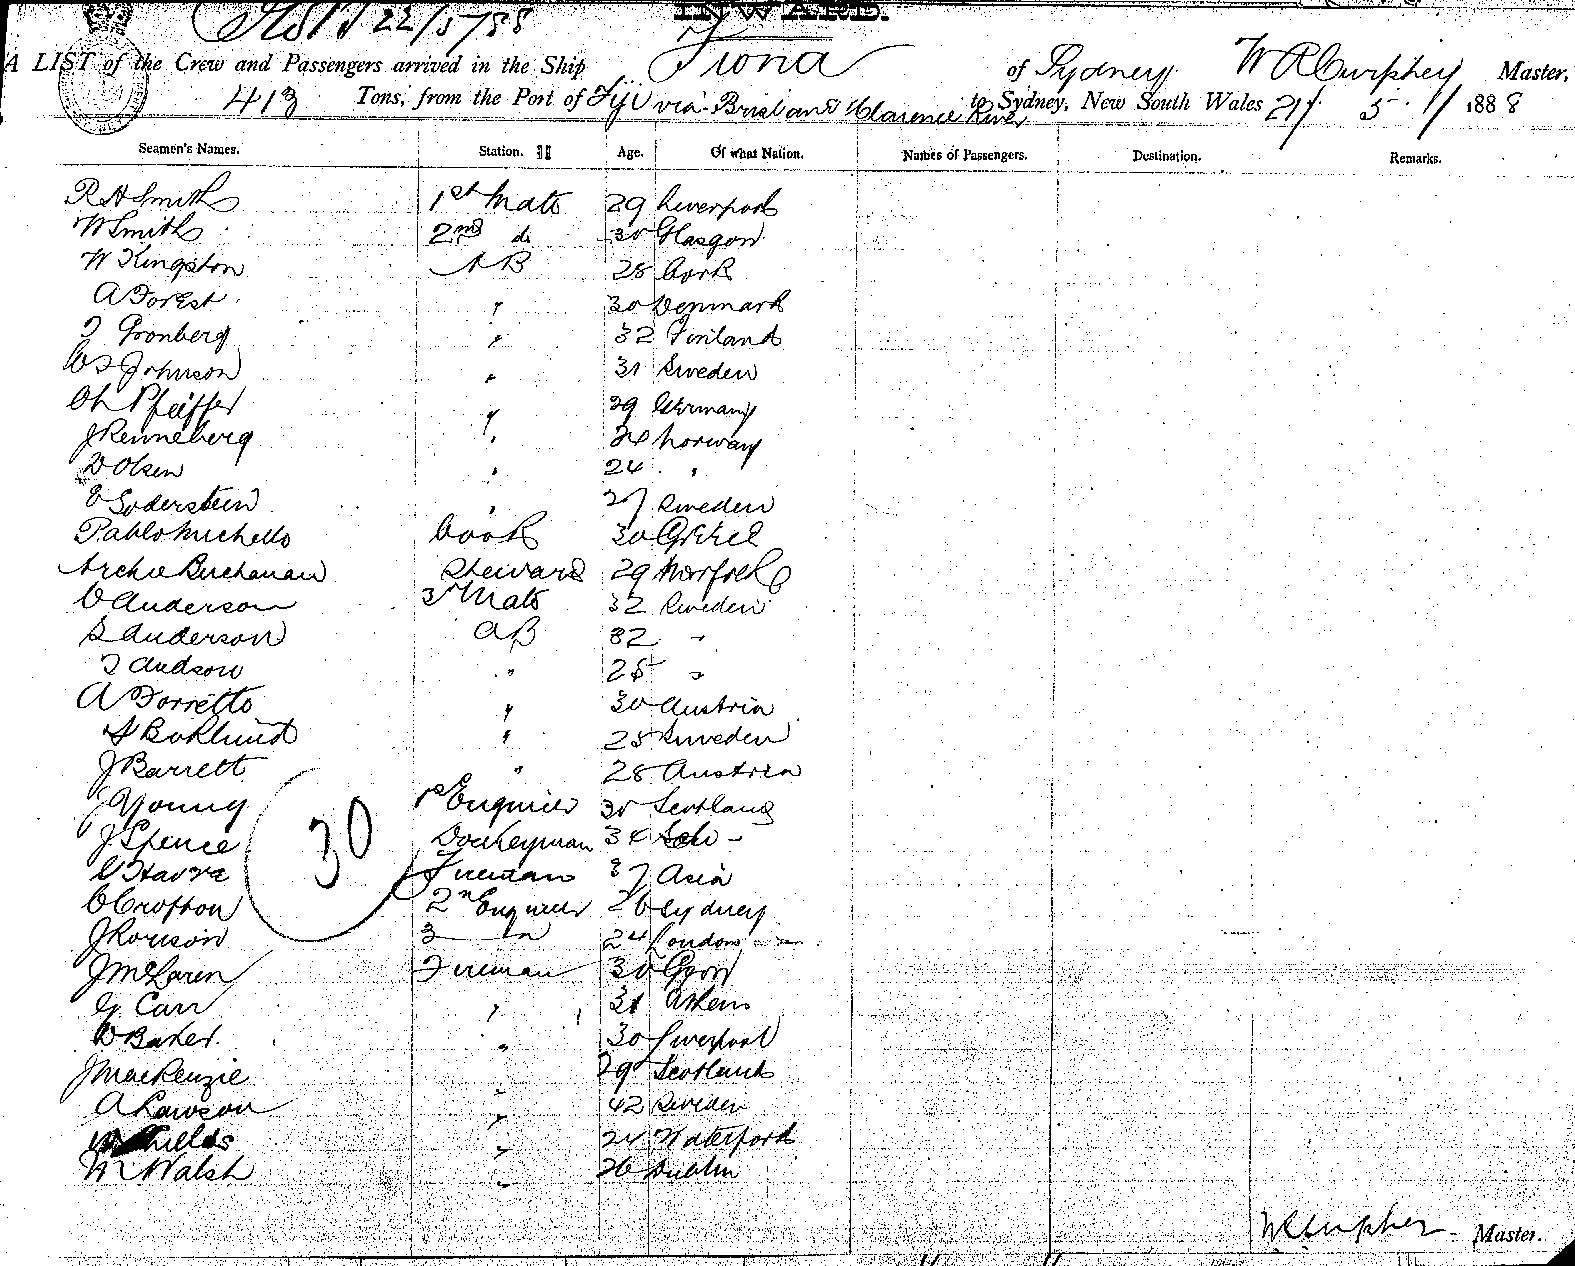 INWARD.
22/5/88
A LIST of the Crew and Passengers arrived in the Ship Fiona of Sydney W R Curphey Master,
413 Tons, from the Port of Fiji via Brisbane & Clarence River to Sydney, New South Wales 21st 5 1888
Seamen's Names. Station. Age. Of what Nation. Names of Passengers. Destination. Remarks.
R H Smith 1st Mate 29 Liverpool
W Smith 2nd do 30 Glasgow
W Kingston AB 28 Cork
A Forest " 30 Denmark
Gronberg " 32 Finland
Johnson " 31 Sweden
Ch Pfeiffer " 29 Germany
J Renneberg " 24 Norway
D Olsen " 24 "
Soderstein " 27 Sweden
Pablo Michello Cook 30 Greece
Archie Buchanan Steward 29 Norfolk
C Anderson 3rd Mate 32 Sweden
S Anderson AB 32 "
" 25 "
A Torretto " 30 Austria
Boklund " 25 Sweden
J Barrett " 28 Austria
J Young 1st Engineer 30 Scotland
J Spence Donkeyman 34
30
Fireman 37 Asia
C Crofton 2nd Engineer 26 Sydney
3 24 London
J McLaren Fireman 30
G Carr " 31
D Baker " 30 Liverpool
J MacKenzie " 29 Scotland
A Lawson " 42 Sweden
" 24 Waterford
M Walsh " 26 Dublin
W R Curphey Master.